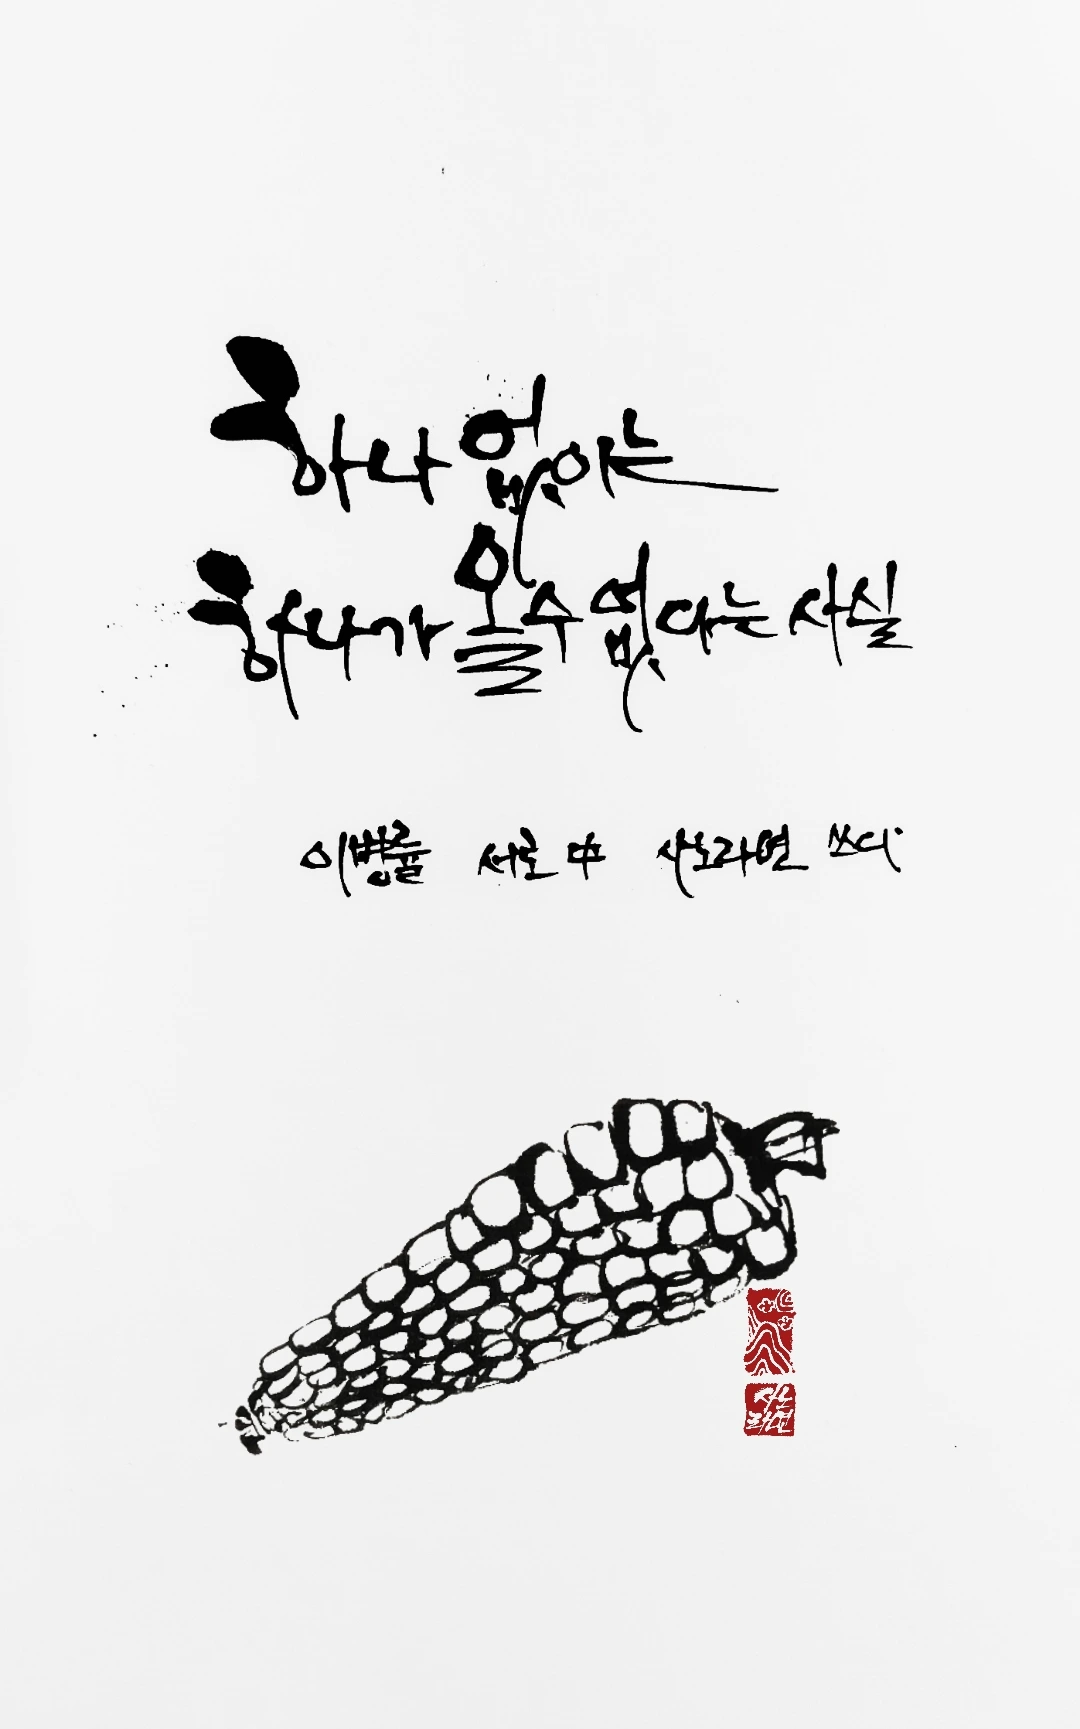 하나 없이는
하나가 올 수 없다는 사실
이병률 서로 中 산노라면 쓰다